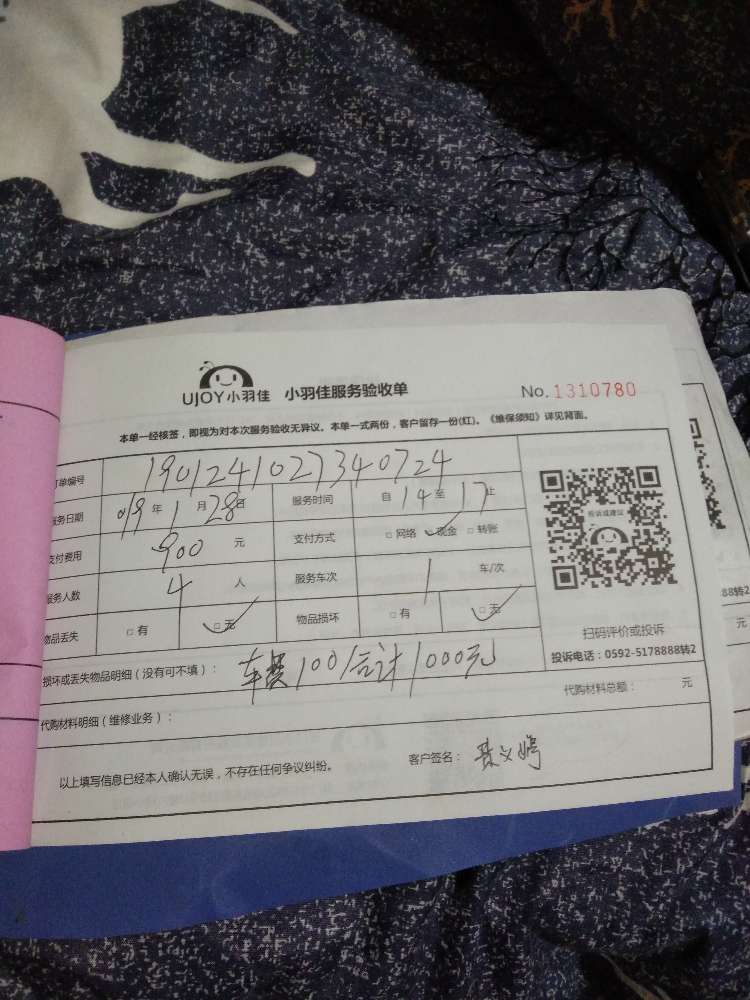 UJOY小羽佳 小羽佳服务验收单 No. 1310780
本单一经核签，即视为对本次服务验收无异议。本单一式两份，客户留存一份(红)。《维保须知》详见背面。
订单编号 1901241027340724
服务日期 019 年 1 月 28 日 服务时间 自 14 至 17 止
支付费用 900 元 支付方式 □ 网络 ✓现金 □ 转账
服务人数 4 人 服务车次 1 车/次
物品丢失 □ 有 □ 无 ✓ 物品损坏 □ 有 □ 无 ✓
投诉或建议
扫码评价或投诉
投诉电话：0592-5178888转2
损坏或丢失物品明细（没有可不填）： 车费100/合计1000元
代购材料明细（维修业务）： 代购材料总额： 元
以上填写信息已经本人确认无误，不存在任何争议纠纷。 客户签名：
88转2
元